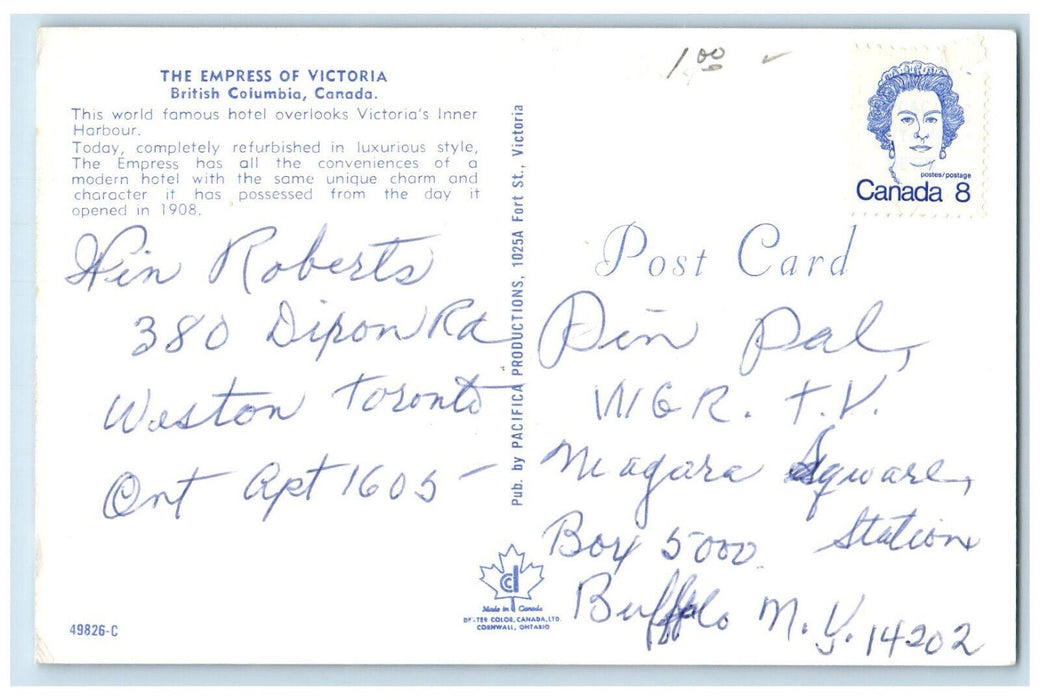 THE EMPRESS OF VICTORIA
British Columbia, Canada.
This world famous hotel overlooks Victoria's Inner
Harbour.
Today, completely refurbished in luxurious style,
The Empress has all the conveniences of a
modern hotel with the same unique charm and
character it has possessed from the day it
opened in 1908.
Win Roberts
380 Dixon Rd
Weston Toronto
Ont Apt 1605
49826-C
Pub. by PACIFICA PRODUCTIONS, 1025A Fort St., Victoria
Made in Canada
DEXTER COLOR, CANADA, LTD.
CORNWALL, ONTARIO
1.00
postes/postage
Canada 8
Post Card
Pin Pal,
WGR. T.V.
Niagara Square,
Station
Box 5000
Buffalo N.Y. 14202